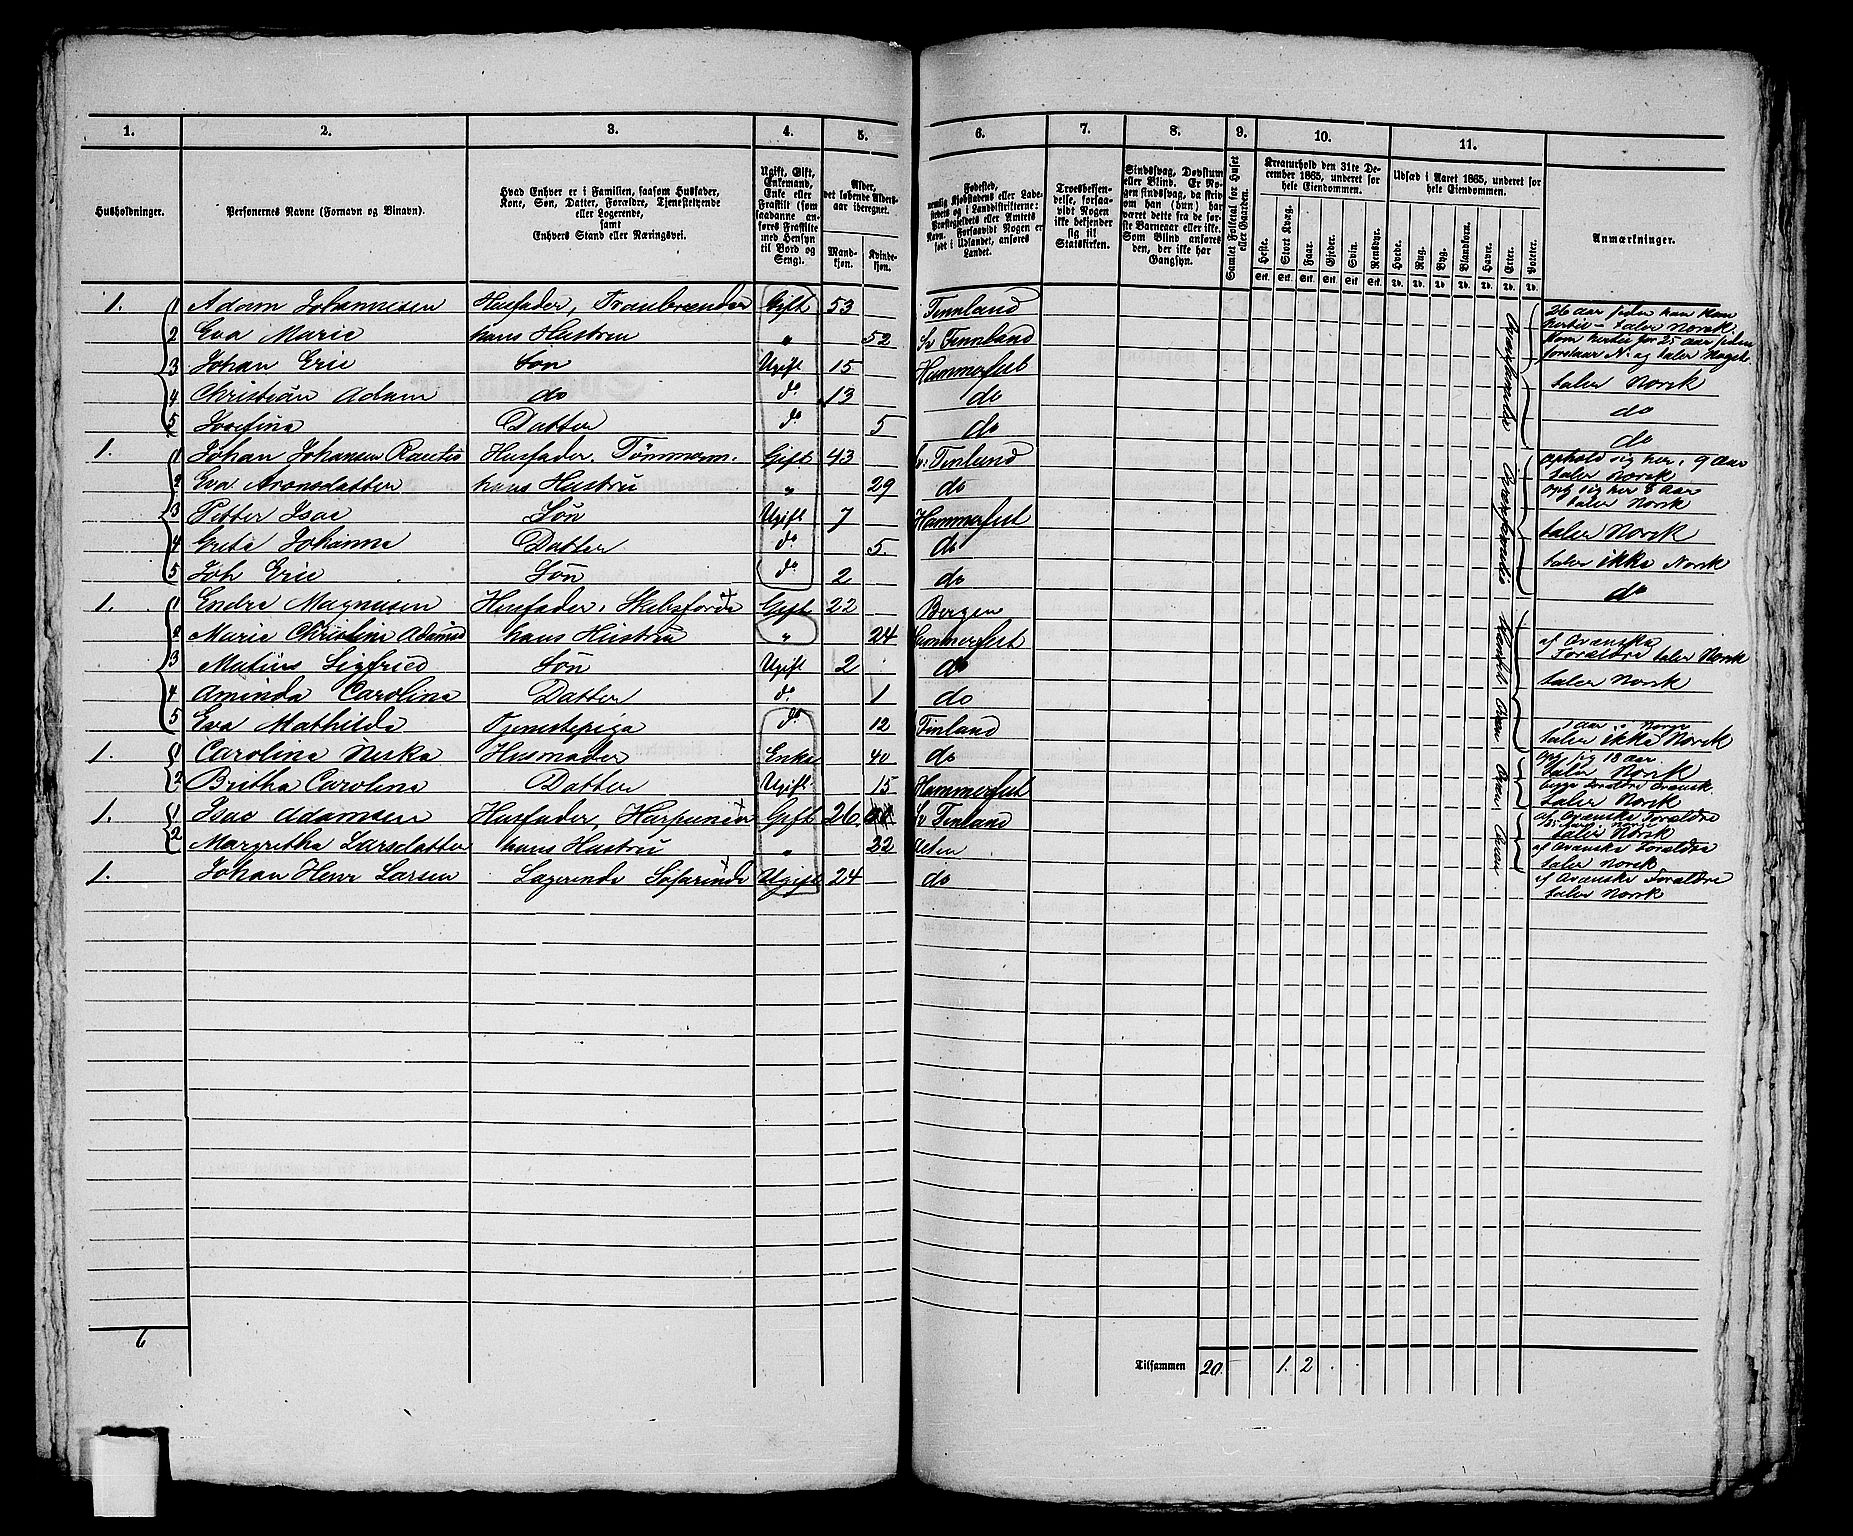 1. 2. 3. 4. 5. 6. 7. 8. 9. 10. 11.
Husholdninger.
Personernes Navne (Fornavn og Binavn).
Hvad Enhver er i Familien, saasom Husfader,
Kone, Søn, Datter, Forældre, Tjenestetyende
eller Logerende,
samt
Enhvers Stand eller Næringsvei.
Ugift, Gift,
Enkemand,
Enke eller
Fraskilt (som
saadanne an-
føres Fraskilte
med Hensyn
til Bord og
Seng).
Alder,
det løbende Alders-
aar iberegnet.
Mand-
kjøn.
Kvinde-
kjøn.
Fødested,
nemlig Kjøbstadens eller Lade-
stedets og i Landdistrikterne:
Præstegjeldets eller Amtets
Navn. Forsaavidt Nogen er
født i Udlandet, anføres
Landet.
Troesbekjen-
delse, forsaa-
vidt Nogen
ikke bekjender
sig til
Statskirken.
Sindssvag, Døvstum
eller Blind. Er No-
gen sindssvag, da skriv
om han (hun) har
været dette fra de før-
ste Barneaar eller ikke.
Som Blind anføres
den, der ikke har
Gangsyn.
Samlet Folketal for Huset
eller Gaarden.
Kreaturhold den 31te De-
cember 1865, underet for
hele Eiendommen.
Heste. Stort Kvæg. Faar. Gjeder. Svin. Rensdyr.
Stk. Stk. Stk. Stk. Stk. Stk.
Udsæd i Aaret 1865, underet for
hele Eiendommen.
Hvede. Rug. Byg. Blandkorn. Havre. Erter. Poteter.
Td. Td. Td. Td. Td. Td. Td.
Anmærkninger.
1. 1 Adam Johannesen Husfader, Tranbrænder Gift 53 Finnland 26 aar siden han kom
hertil - taler Norsk.
2 Eva Marie hans Hustru " 52 Sv Finnland Kom hertil for 25 aar siden
forstaar N: og taler Noget
3 Johan Eric Søn Ugift 15 Hammerfest taler Norsk
4 Christian Adam do do 13 do do
5 Josefina Datter do 5 do do
1. 1 Johan Johansen Rautio Husfader. Tømmerm. Gift 43 Sv: Finland ophold sig her i 9 Aar
taler Norsk
2 Eva Aronsdatter hans Hustru " 29 do oph sig her 8 Aar
taler Norsk
3 Petter Isac Søn Ugift 7 Hammerfest taler Norsk
4 Greta Johanna Datter do 5. do taler ikke Norsk
5 Joh Eric Søn do 2 do do
1. 1 Endre Magnusen Husfader, Gift 22 Bergen
2 Marie Christine hans Hustru " 24 Hammerfest af Qvænske
Forældre taler Norsk
3 Matius Sigfried Søn Ugift 2 do taler Norsk
4 Aminda Carolina Datter do 1 do
5 Eva Mathilda Tjenestepiga do 12 Finland 1 aar i Norge
taler ikke Norsk
1. 1 Carolina Niska Husmoder Enke 40 do oph sig 18 aar
taler Norsk
2 Britha Carolina Datter Ugift 15 Hammerfest begge Forældre Qvænsk.
taler Norsk
1. 1 Isac Adamsen Husfader, Harpuner Gift 26 Sv Finland af Qvænske Forældre
taler Norsk
2 Margretha Larsdatter hans Hustru " 32 Alten af Qvænske Forældre
taler Norsk
1. Johan Henr Larsen Logerende Søfarende Ugift 24 do af Qvænske Forældre
taler Norsk
6
Tilsammen 20 1. 2